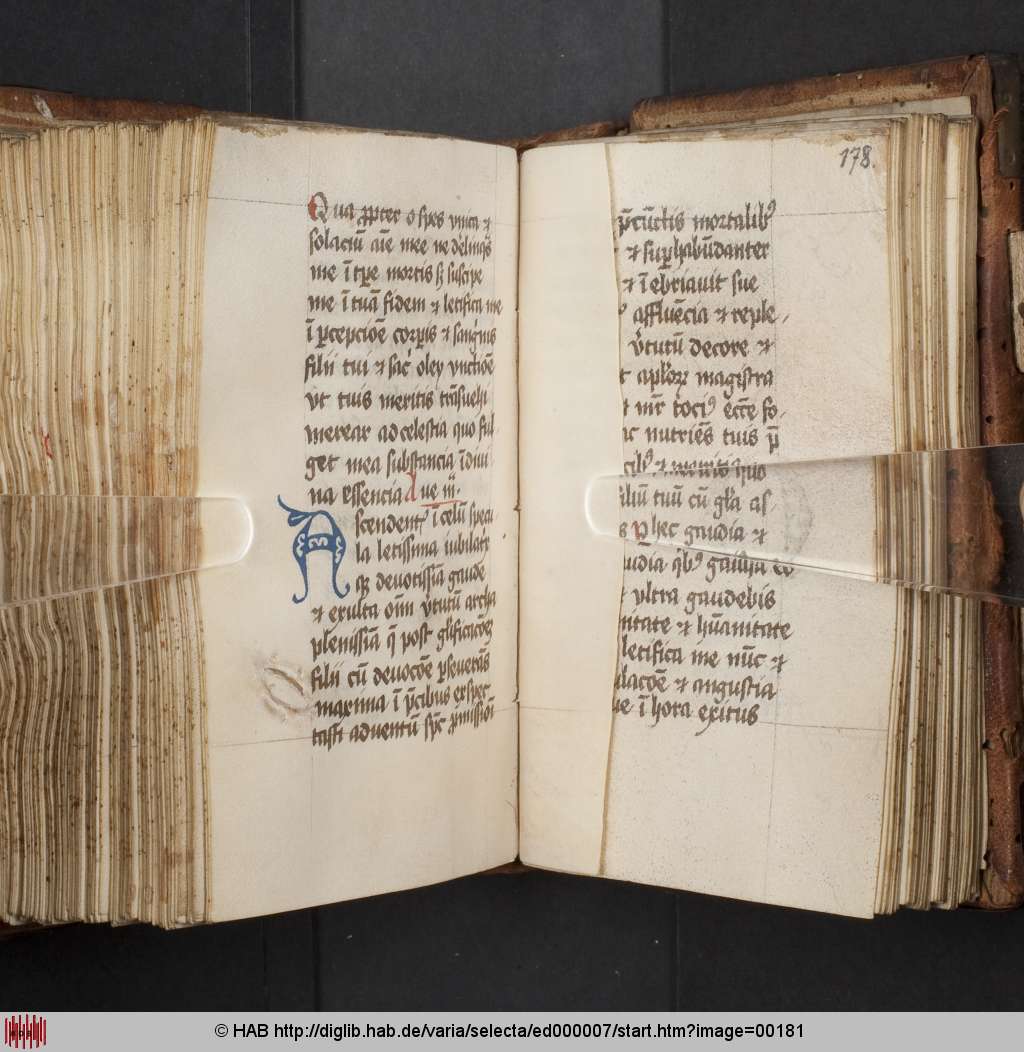 Qua ꝓpter o spes vnica ⁊
solaciū aīe mee ne delinq̄s
me ī tꝑe mortis sꝫ suscipe
me ī tuā fidem ⁊ letifica me
ī ꝑcepcioē corꝑis ⁊ sangⁱnis
filii tui ⁊ sac̄ oley vnctiōe
vt tuis meritis trāsuehi
merear ad celestia quo ful
get mea substancia ī diui
na essencia Aue iij·
Ascendentꝭ ī celū specu
la letissima iubilate
qꝫ deuotissīa gaude
⁊ exulta oīm v̄tutū archa
plenissīa q̄ post gl̄ificacōeꝫ
filii cū deuocōe ꝑseuerās
maxima ī p̄cibus exspec
tasti aduentū sp̄c ꝓmissiōī
178.
p̄cūctis mortalibꝰ
⁊ suꝑhabūdanter
⁊ ī ebriauit sue
affluēcia ⁊ reple
v̄tutū decore ⁊
apl̄oꝝ magistra
mr̄ tociꝰ ecc̄e fo
nutriēs tuis p̄
⁊ meritis quo
filiū tuū cū gl̄a as
ꝑ hec gaudia ⁊
q̄bꝰ gauisa es
vltra gaudebis
⁊ hūanitate
letifica me nūc ⁊
⁊ angustia
ī hora exitus
© HAB http://diglib.hab.de/varia/selecta/ed000007/start.htm?image=00181